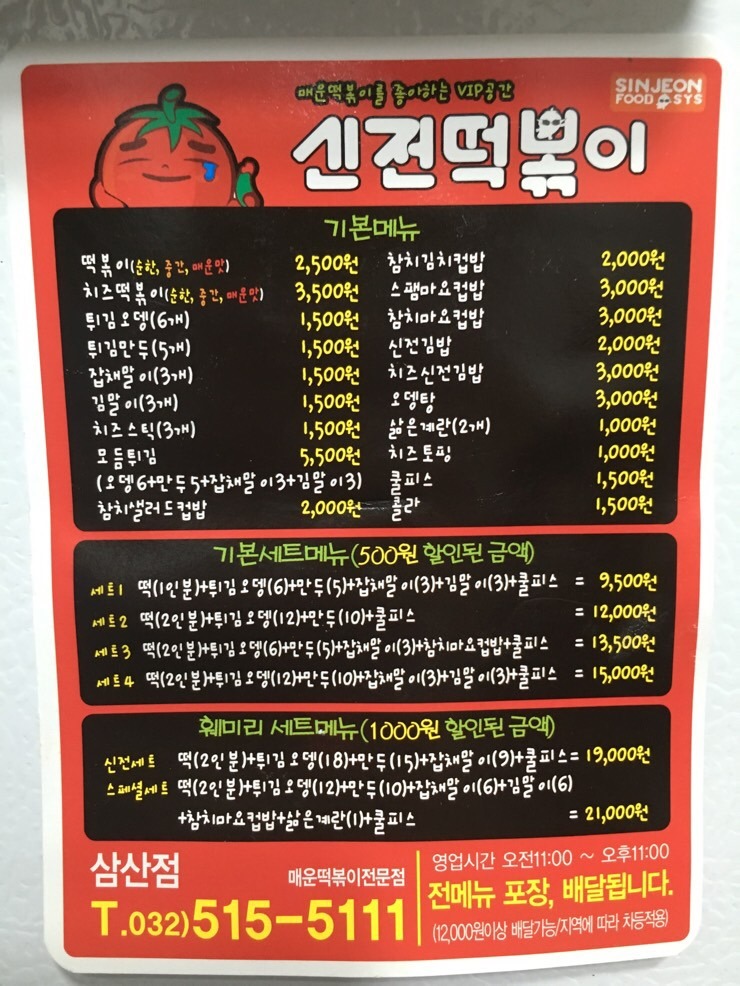 매운떡볶이를 좋아하는 VIP공간
SINJEON
FOOD SYS
신전떡볶이
기본메뉴
떡볶이(순한, 중간, 매운맛) 2,500원
치즈떡볶이(순한, 중간, 매운맛) 3,500원
튀김오뎅(6개) 1,500원
튀김만두(5개) 1,500원
잡채말이(3개) 1,500원
김말이(3개) 1,500원
치즈스틱(3개) 1,500원
모듬튀김 5,500원
(오뎅6+만두5+잡채말이3+김말이3)
참치샐러드컵밥 2,000원
참치김치컵밥 2,000원
스팸마요컵밥 3,000원
참치마요컵밥 3,000원
신전김밥 2,000원
치즈신전김밥 3,000원
오뎅탕 3,000원
삶은계란(2개) 1,000원
치즈토핑 1,000원
쿨피스 1,500원
콜라 1,500원
기본세트메뉴(500원 할인된 금액)
세트1 떡(1인분)+튀김오뎅(6)+만두(5)+잡채말이(3)+김말이(3)+쿨피스 = 9,500원
세트2 떡(2인분)+튀김오뎅(12)+만두(10)+쿨피스 = 12,000원
세트3 떡(2인분)+튀김오뎅(6)+만두(5)+잡채말이(3)+참치마요컵밥+쿨피스 = 13,500원
세트4 떡(2인분)+튀김오뎅(12)+만두(10)+잡채말이(3)+김말이(3)+쿨피스 = 15,000원
훼미리 세트메뉴(1000원 할인된 금액)
신전세트 떡(2인분)+튀김오뎅(18)+만두(15)+잡채말이(9)+쿨피스= 19,000원
스페셜세트 떡(2인분)+튀김오뎅(12)+만두(10)+잡채말이(6)+김말이(6)
+참치마요컵밥+삶은계란(1)+쿨피스 = 21,000원
삼산점 매운떡볶이전문점
T.032)515-5111
영업시간 오전11:00 ~ 오후11:00
전메뉴 포장, 배달됩니다.
(12,000원이상 배달가능/지역에 따라 차등적용)